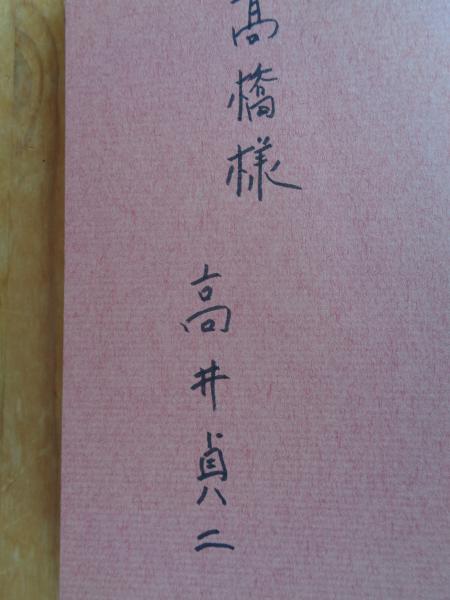 髙橋様
高井貞二